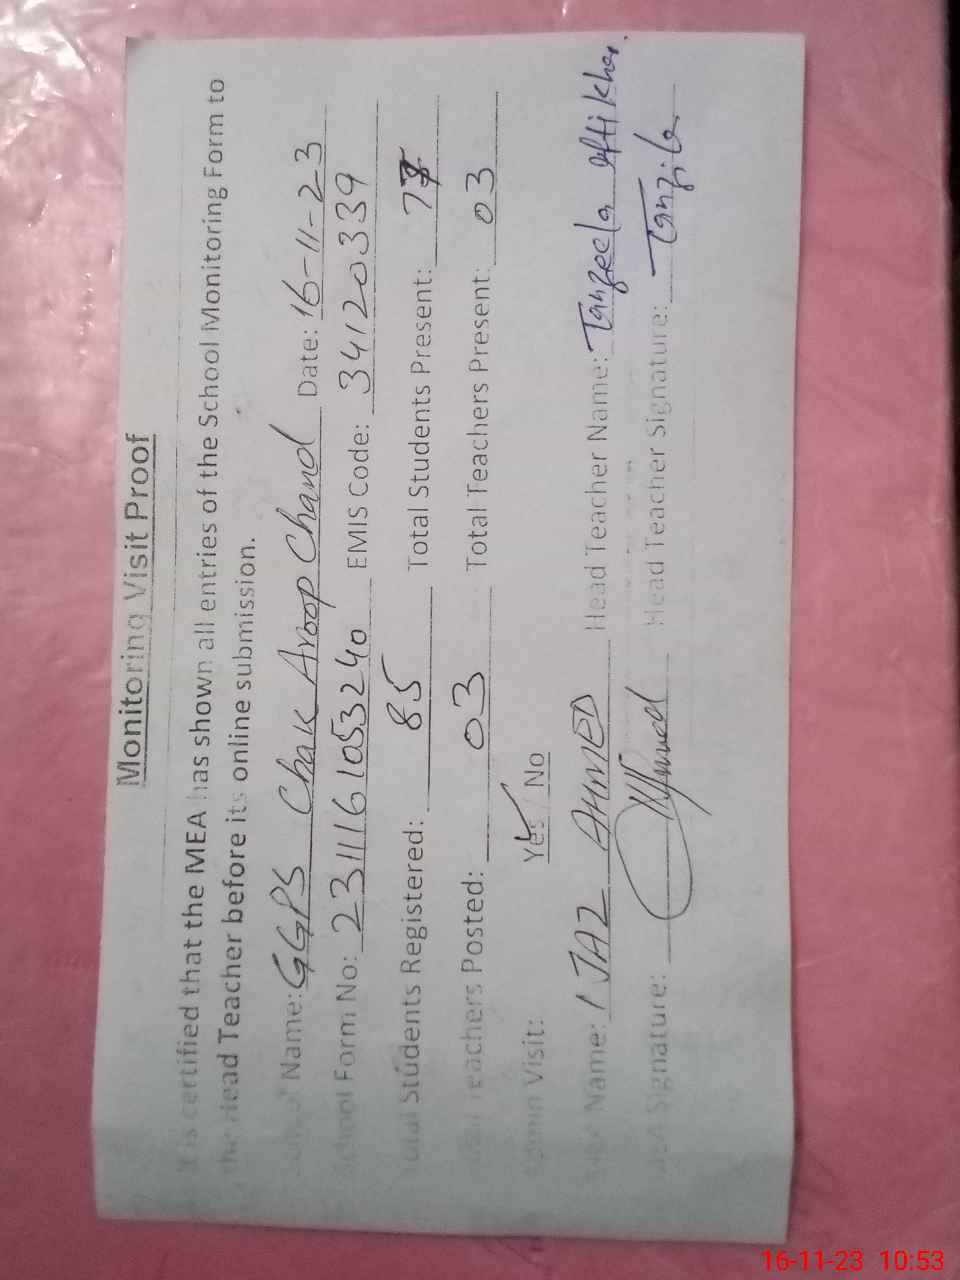 Monitoring Visit Proof
It is certified that the MEA has shown all entries of the School Monitoring Form to
the Head Teacher before its online submission.
School Name: GGPS Chak Aroop Chand Date: 16-11-23
School Form No: 2311161053240 EMIS Code: 34120339
Total Students Registered: 85 Total Students Present:
Total Teachers Posted: 03 Total Teachers Present: 03
Admin Visit: Yes / No
MEA Name: IJAZ AHMED Head Teacher Name: Tanzeela iftikhar.
MEA Signature: Head Teacher Signature: Tanzila
16-11-23 10:53